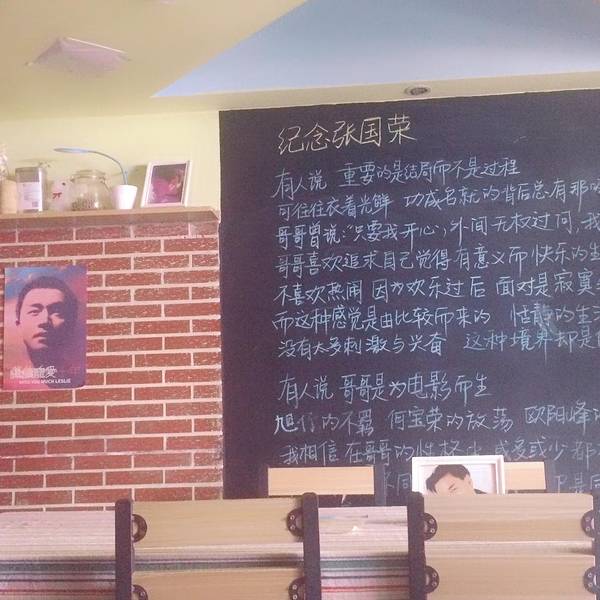 纪念张国荣
有人说 重要的是结局而不是过程
可往往衣着光鲜 功成名就的背后总有那
哥哥曾说:"只要我开心,外间无权过问,我
哥哥喜欢追求自己觉得有意义而快乐的生
不喜欢热闹 因为欢乐过后 面对是寂寞
而这种感觉是由比较而来的 恬静的生活
没有太多刺激与兴奋 这种境界却是
有人说 哥哥是为电影而生
旭仔的不羁 何宝荣的放荡 欧阳峰
我相信在哥哥的性格 或多或少都
MISS YOU MUCH LESLIE